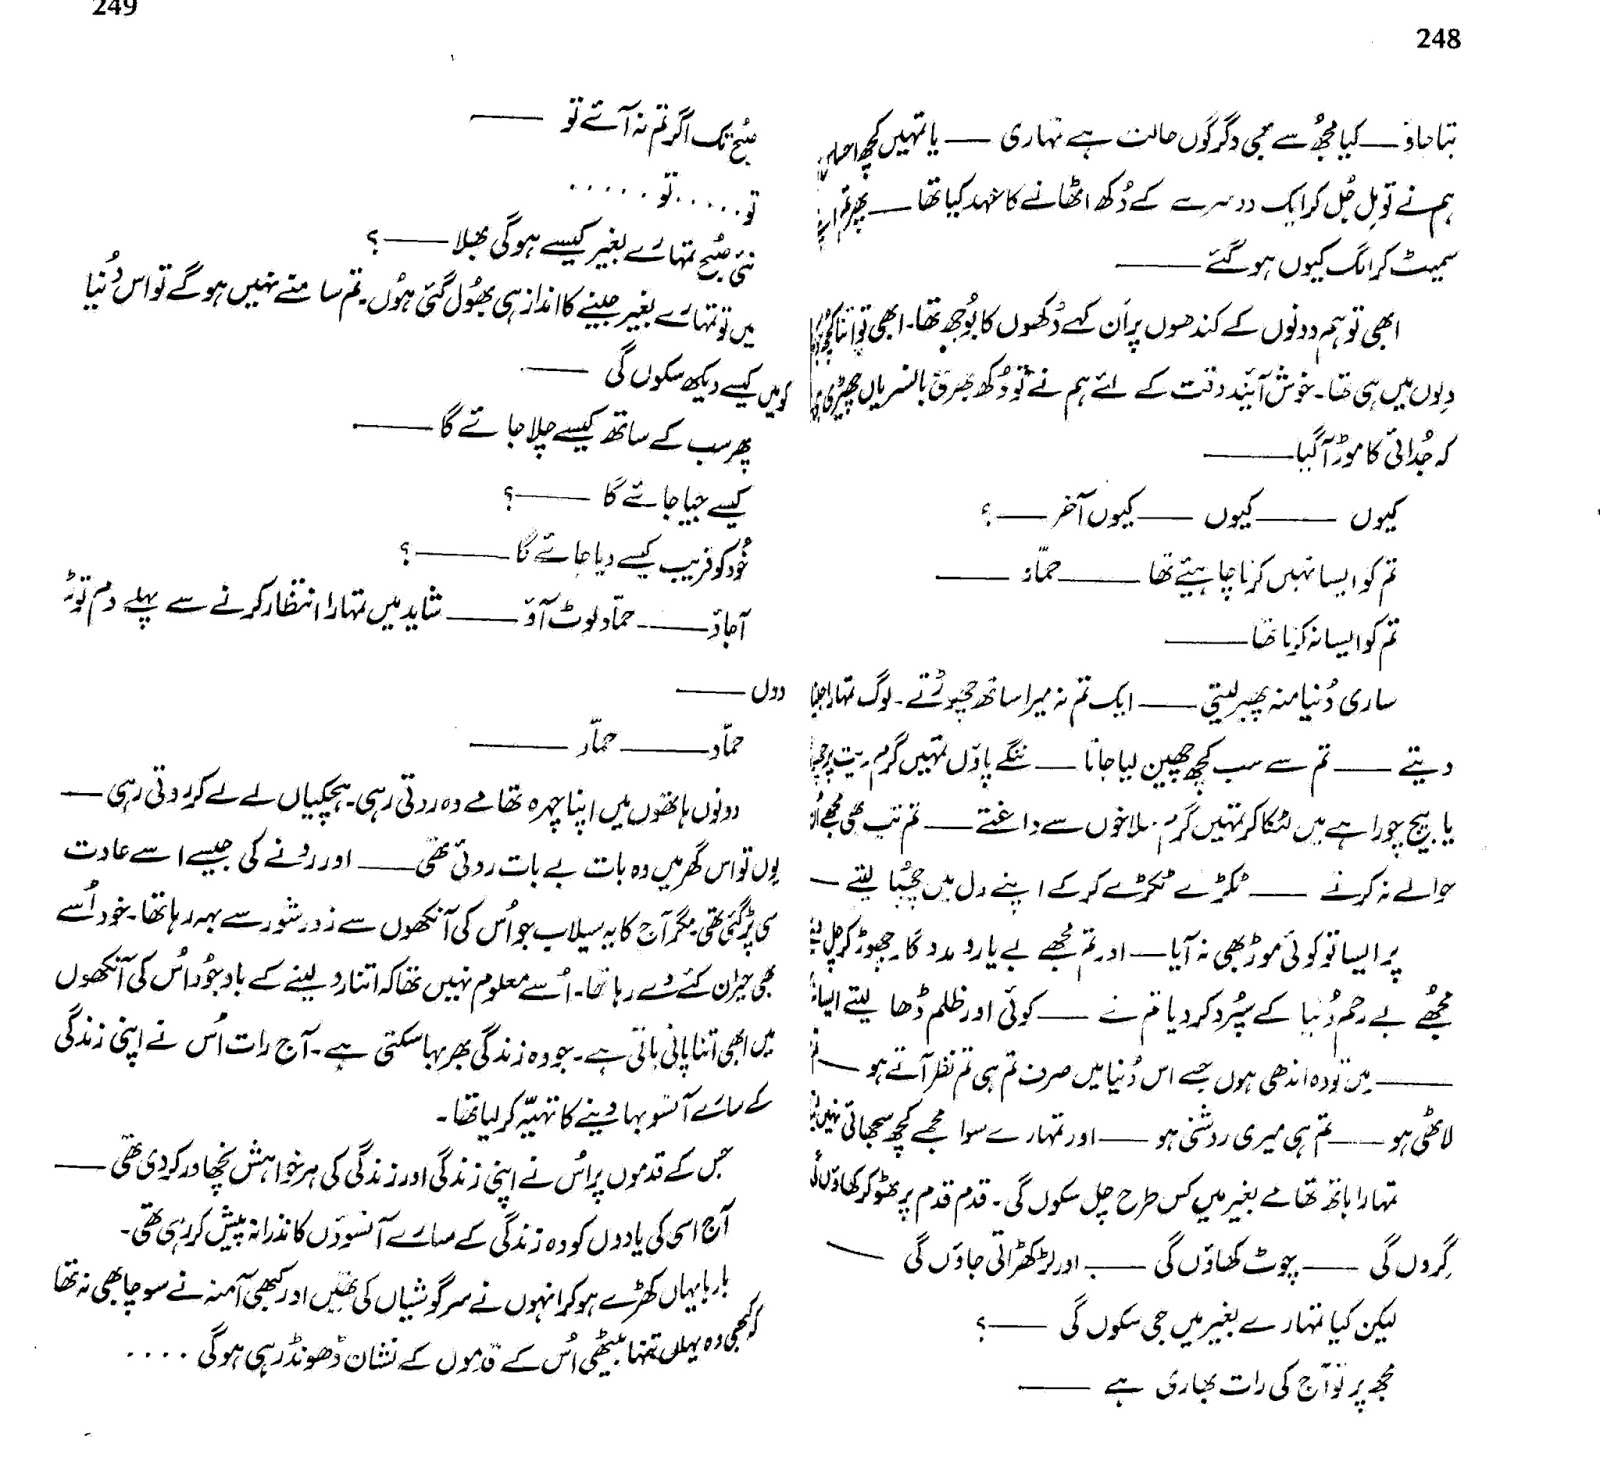 248
بتا جاؤ——کیا مجھ سے بھی دگرگوں حالت ہے تمہاری —— یا تمہیں کچھ
ہم نے تو مل جُل کر ایک دوسرے کے دُکھ اٹھانے کا عہد کیا تھا —— پھر تم
سمیٹ کر الگ کیوں ہو گئے ——
ابھی تو ہم دونوں کے کندھوں پر اَن کہے دُکھوں کا بُوجھ تھا۔ ابھی تو اتنا کچھ
دلوں میں ہی تھا۔ خوش آئیند وقت کے لئے ہم نے تو دُکھ بھری بانسریاں چھیڑی
کہ جُدائی کا موڑ آگیا——
کیوں —— کیوں —— کیوں آخر ——؟
تم کو ایسا نہیں کرنا چاہیئے تھا —— حمّاد ——
تم کو ایسا نہ کرنا تھا——
ساری دُنیا منہ پھیر لیتی —— ایک تم نہ میرا ساتھ چھوڑتے۔ لوگ تمہارا
دیتے —— تم سے سب کچھ چھین لیا جاتا —— ننگے پاؤں تمہیں گرم ریت پر
یا بیچ چوراہے میں لٹکا کر تمہیں گرم سلاخوں سے داغتے —— تم تب بھی مجھے
حوالے نہ کرتے —— ٹکڑے ٹکڑے کر کے اپنے دل میں چھپا لیتے ——
پر ایسا تو کوئی موڑ بھی نہ آیا—— اور تم مجھے بے یارو مددگار چھوڑ کر چل
مجھے بے رحم دُنیا کے سپُرد کر دیا تم نے —— کوئی اور ظلم ڈھا لیتے
—— میں تو وہ اندھی ہوں جسے اس دُنیا میں صرف تم ہی تم نظر آتے ہو ——
لاٹھی ہو —— تم ہی میری روشنی ہو —— اور تمہارے سوا مجھے کچھ سجھائی نہیں
تمہارا ہاتھ تھامے بغیر میں کس طرح چل سکوں گی۔ قدم قدم پر ٹھوکر کھاؤں
گروں گی —— چوٹ کھاؤں گی —— اور لڑکھڑاتی جاؤں گی ——
لیکن کیا تمہارے بغیر میں جی سکوں گی ——؟
مجھ پر تو آج کی رات بھاری ہے ——
249
صُبح تک اگر تم نہ آئے تو ——
تو.....تو.....
نئی صُبح تمہارے بغیر کیسے ہوگی بھلا ——؟
میں تو تمہارے بغیر جینے کا انداز ہی بھُول گئی ہُوں۔ تم سامنے نہیں ہوگے تو اس دُنیا
کو میں کیسے دیکھ سکوں گی ——
پھر سب کے ساتھ کیسے چلا جائے گا ——
کیسے جیا جائے گا ——؟
خُود کو فریب کیسے دیا جائے گا ——؟
آجاؤ —— حمّاد لوٹ آؤ —— شاید میں تمہارا انتظار کرنے سے پہلے دم توڑ
دوں ——
حمّاد —— حمّاد ——
دونوں ہاتھوں میں اپنا چہرہ تھامے وہ روتی رہی۔ ہچکیاں لے لے کر روتی رہی ——
یوں تو اس گھر میں وہ بات بے بات روئی تھی —— اور رونے کی جیسے اسے عادت
سی پڑ گئی تھی۔ مگر آج کا یہ سیلاب جو اُس کی آنکھوں سے زور شور سے بہہ رہا تھا۔ خود اُسے
بھی حیران کئے دے رہا تھا۔ اُسے معلوم نہیں تھا کہ اتنا رو لینے کے باوجُود اُس کی آنکھوں
میں ابھی اتنا پانی باقی ہے۔ جو وہ زندگی بھر بہا سکتی ہے۔ آج رات اُس نے اپنی زندگی
کے سارے آنسو بہا دینے کا تہیّہ کر لیا تھا۔
جس کے قدموں پر اُس نے اپنی زندگی اور زندگی کی ہر خواہش نچھاور کر دی تھی ——
آج اسی کی یادوں کو وہ زندگی کے سارے آنسوؤں کا نذرانہ پیش کر رہی تھی۔
بارہا یہاں کھڑے ہو کر انہوں نے سرگوشیاں کی تھیں اور کبھی آمنہ نے سوچا بھی نہ تھا
کہ کبھی وہ یہاں تنہا بیٹھی اُس کے قدموں کے نشان ڈھونڈ رہی ہوگی ....